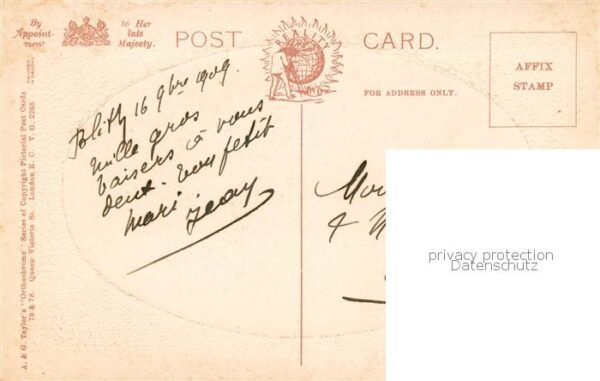 By Appointment
to Her late Majesty.
POST CARD.
REALITY
FOR ADDRESS ONLY.
AFFIX
STAMP
A. & G. Taylor's "Orthochrome" Series of Copyright Pictorial Post Cards
70 & 78. Queen Victoria St. London E. C. V. O. 2268
16 9bre 1909.
Mille gros
baisers à vous
deux. Ton petit
mari Jean
&
privacy protection
Datenschutz